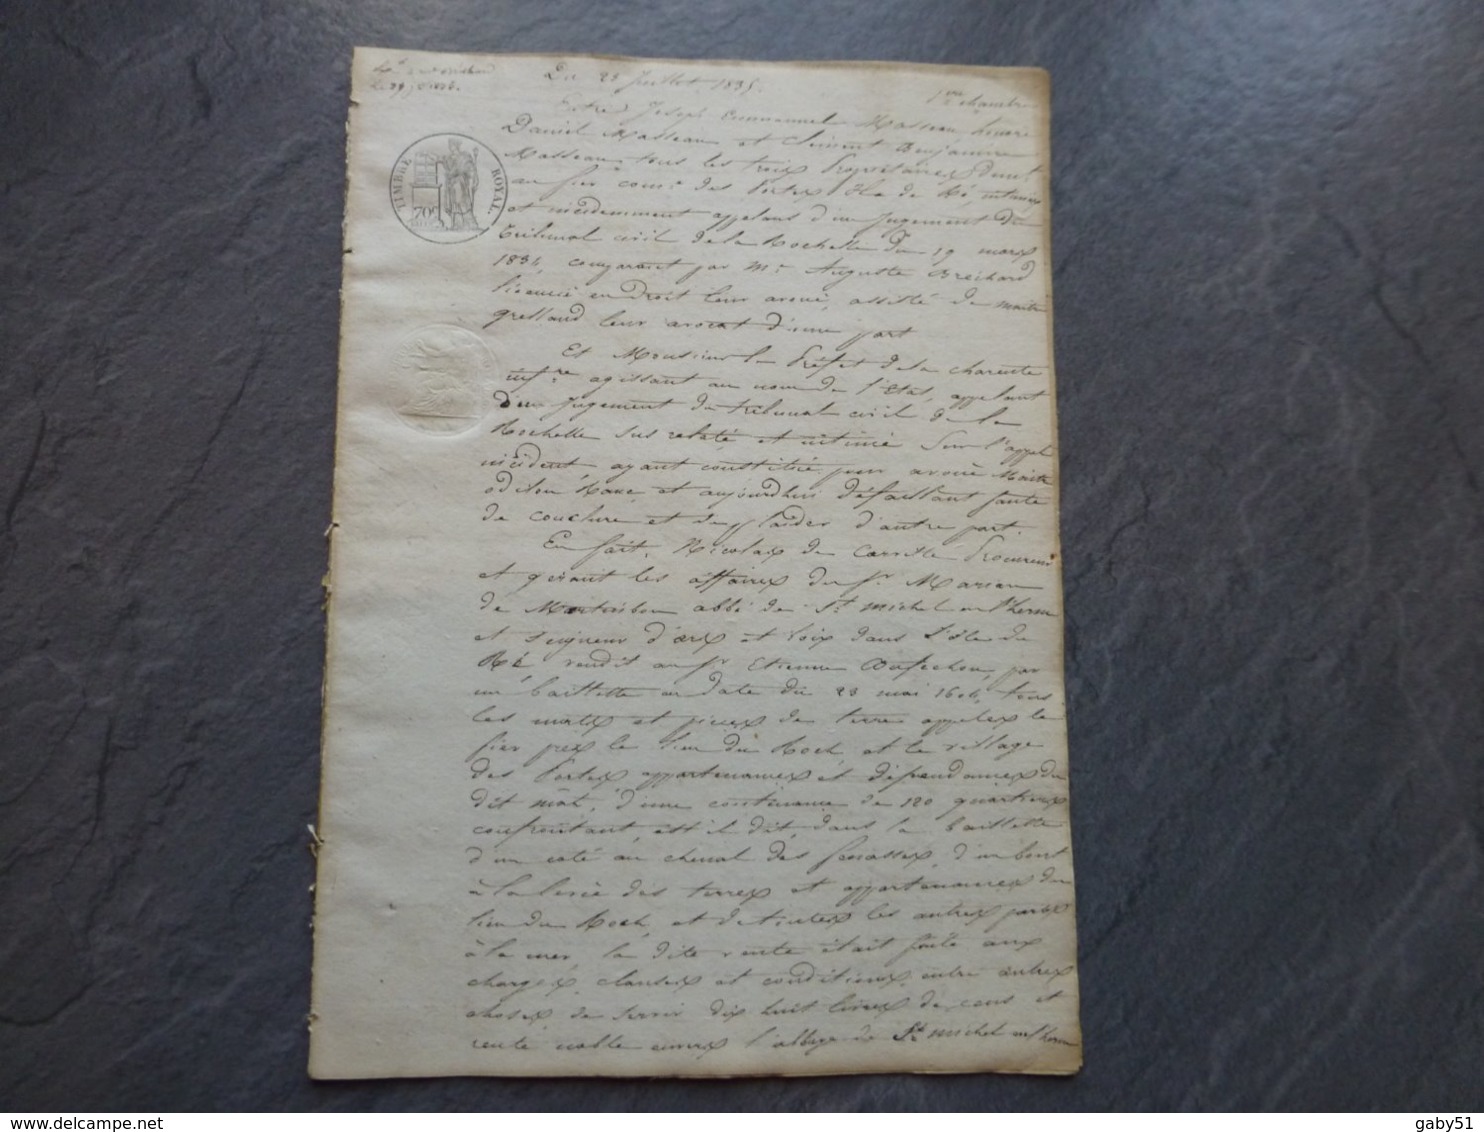 Du 28 Juillet 1835.
1ère chambre
Entre Joseph Emmanuel Masseau, honoré
Daniel Masseau et Clément Benjamin
Masseau tous les trois Propriétaires demt
au fier comne des Portes Ile de Ré, intimés
et incidemment appelans d'un Jugement du
Tribunal civil de la Rochelle du 19 mars
1834, comparant par Me Auguste Bréchard
licencié en Droit leur avoué, assisté de maitre
grelland leur avocat d'une part
TIMBRE ROYAL.
70c
Et Monsieur le Préfet de la charente
infre agissant au nom de l'Etat, appelant
d'un Jugement du tribunal civil de la
Rochelle sus relaté et intimé sur l'appel
incident ayant constitué pour avoué Maitre
odilon et aujourdhui défaillant faute
de conclure et de plaider d'autre part.
En fait, Nicolas de Procureur
et gérant les affaires du Sr
de abbé de St michel en l'herm
et Seigneur d'ars et loix dans l'ile de
Ré rendit au Sr Etienne par
un baillette en date du 23 mai 1606, tous
les et pièces de terre appelés le
fier pres le lieu du Roch et le village
des Portes appartenances et dépendances du
dit d'une contenance de 120 quartiers
confrontant, est il dit, dans la baillette
d'un coté au chenal des d'un bout
à la des terres et appartenances du
lieu du Roch, et de toutes les autres parts
à la mer, la dite rente était faite aux
charges, clauses et conditions, entre autres
choses, de servir dix huit livres de cens et
rente noble envers l'abbaye de St michel en l'herm
gaby51